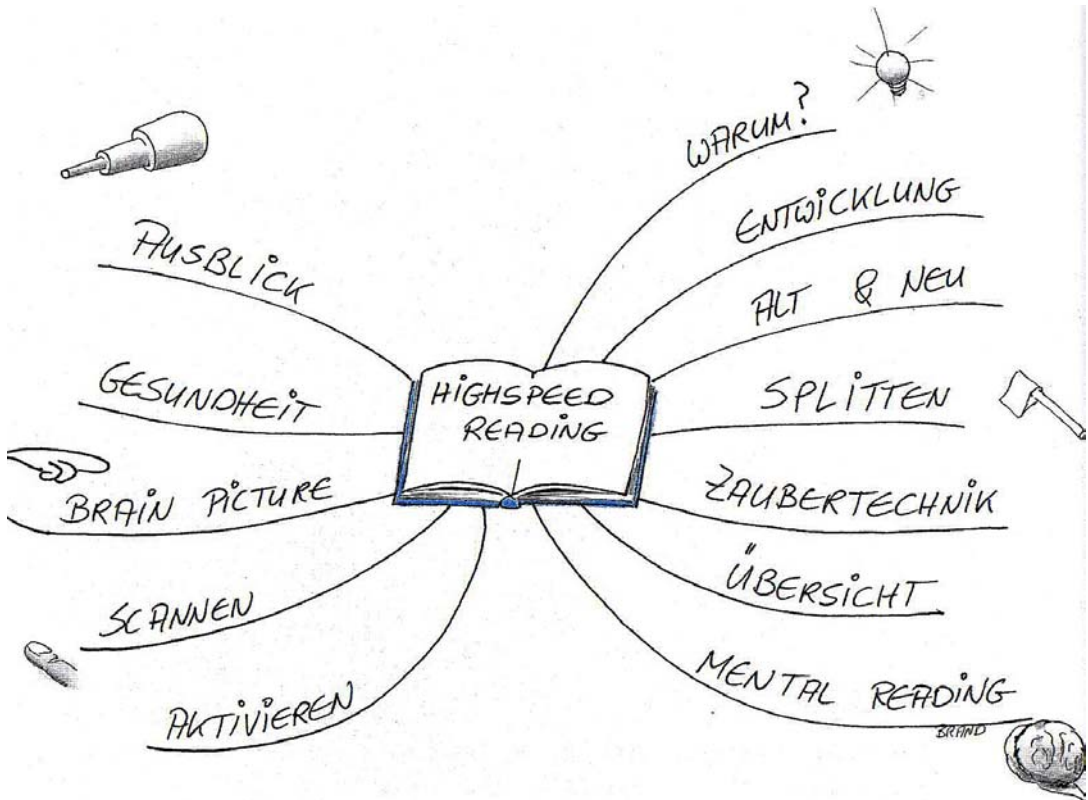 HIGHSPEED
READING
WARUM?
ENTWICKLUNG
ALT & NEU
SPLITTEN
ZAUBERTECHNIK
ÜBERSICHT
MENTAL READING
BRAND
AKTIVIEREN
SCANNEN
BRAIN PICTURE
GESUNDHEIT
AUSBLICK